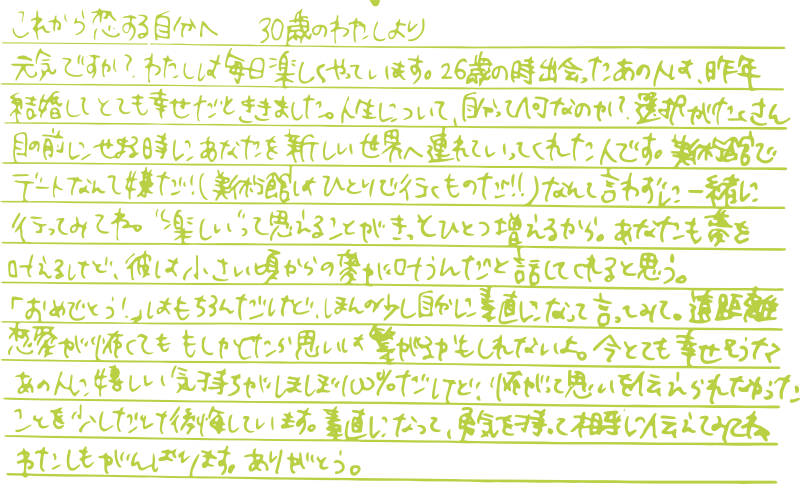 これから恋する自分へ　30歳のわたしより
元気ですか？わたしは毎日楽しくやっています。26歳の時出会ったあの人は、昨年
結婚してとても幸せだとききました。人生について、自分って何なのか？選択がたくさん
目の前にせまる時にあなたを新しい世界へ連れていってくれた人です。美術館で
デートなんて嫌だ!!(美術館はひとりで行くものだ!!)なんて言わずに一緒に
行ってみてね。“楽しい”って思えることがきっとひとつ増えるから。あなたも夢を
叶えるけど、彼は小さい頃からの夢が叶うんだと話してくれると思う。
「おめでとう！」はもちろんだけど、ほんの少し自分に素直になって言ってみて。遠距離
恋愛が怖くてももしかしたら思いは繋がるかもしれないよ。今とても幸せそうな
あの人に嬉しい気持ちがほぼ100%だけど、怖がって思いを伝えられなかった
ことを少しだけ後悔しています。素直になって、勇気を持って相手に伝えてみてね
わたしもがんばります。ありがとう。